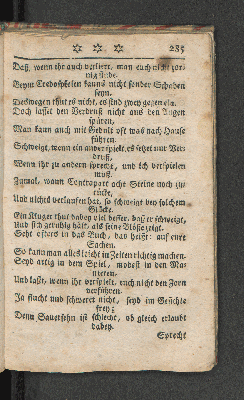 ✡ ✡ ✡ 285
Daß, wenn ihr auch verliert, man euch nicht zor-
nig finde.
Beym Credospielen kanns nicht sonder Schaden
seyn.
Deswegen thut es nicht, es sind zwey gegen ein.
Doch lasset den Verdruß nicht aus den Augen
spüren,
Man kann auch mit Gedult oft was nach Hause
führen.
Schweigt, wenn ein ander spielt, es setzet nur Ver-
druß,
Wenn ihr zu andern sprecht, und ich verspielen
muß.
Zumal, wann Contrapart acht Steine noch zu-
rücke,
Und nichts verlaufen hat, so schweiget bey solchem
Glücke.
Ein Kluger thut dabey viel besser, daß er schweigt,
Und sich geruhig hält, als seine Blösse zeigt.
Seht öfters in das Buch, das heißt: auf eure
Sachen.
So kann man alles leicht in Zeiten richtig machen.
Seyd artig in dem Spiel, modest in den Ma-
nieren.
Und laßt, wenn ihr verspielt, euch nicht den Zorn
verführen.
Ja flucht und schweret nicht, seyd im Gesichte
frey;
Denn Sauersehn ist schlecht, ob gleich erlaubt
dabey.
Sprecht